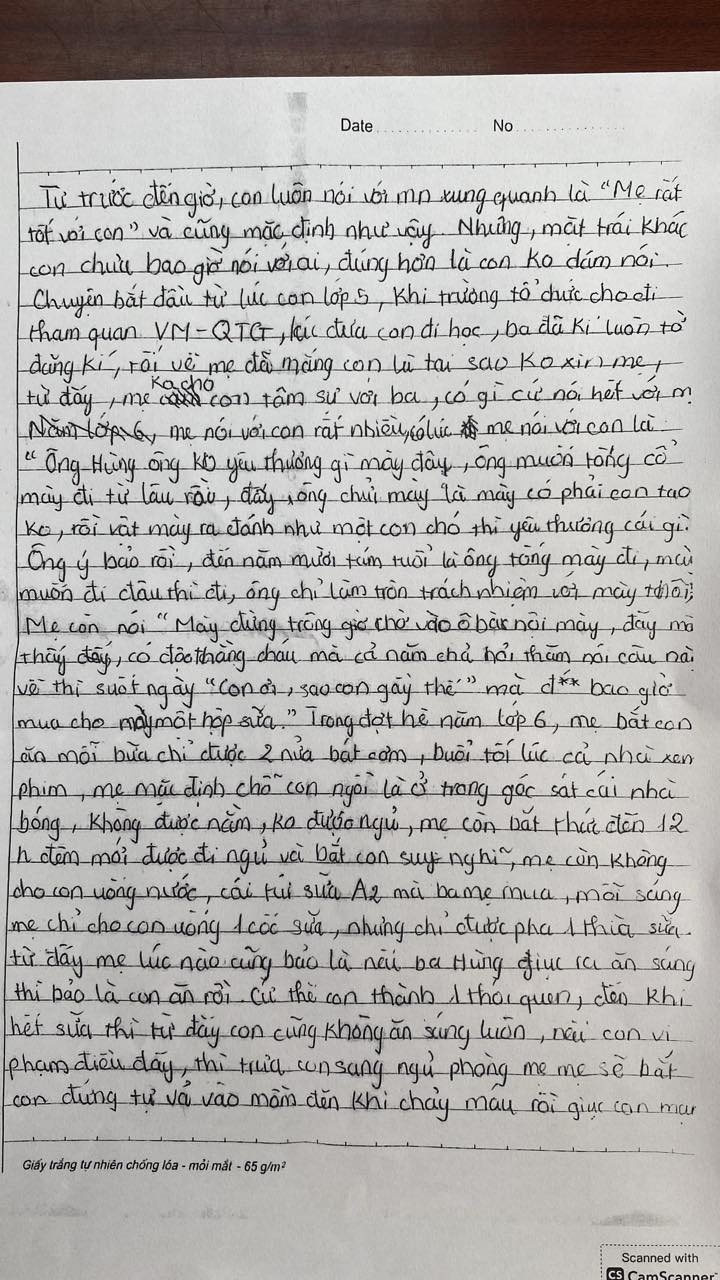 Date No
Từ trước đến giờ, con luôn nói với mn xung quanh là "Mẹ rất
tốt với con" và cũng mặc định như vậy. Nhưng, mặt trái khác
con chưa bao giờ nói với ai, đúng hơn là con ko dám nói.
Chuyện bắt đầu từ lúc con lớp 5, khi trường tổ chức cho đi
tham quan VM-QTG, lúc đưa con đi học, ba đã kí luôn tờ
đăng kí, rồi về mẹ đã mắng con là tại sao ko xin mẹ,
từ đấy, mẹ ko cho con tâm sự với ba, có gì cứ nói hết với m
Năm lớp 6, mẹ nói với con rất nhiều, có lúc mẹ nói với con là:
"Ông Hùng ông ko yêu thương gì mày đâu, ông muốn tống cổ
mày đi từ lâu rồi, đấy, ông chửi mày là mày có phải con tao
ko, rồi vật mày ra đánh như một con chó thì yêu thương cái gì.
Ông ý bảo rồi, đến năm mười tám tuổi là ông tống mày đi, mày
muốn đi đâu thì đi, ông chỉ làm tròn trách nhiệm với mày thôi;
Mẹ còn nói "Mày đừng trông giờ chờ vào ô bà nội mày, đấy mà
thấy đấy, có độc thằng cháu mà cả năm chả hỏi thăm nói câu nào
về thì suốt ngày "Con ơi, sao con gầy thế" mà đ** bao giờ
mua cho mày một hộp sữa." Trong đợt hè năm lớp 6, mẹ bắt con
ăn mỗi bữa chỉ được 2 nửa bát cơm, buổi tối lúc cả nhà xem
phim, mẹ mặc định chỗ con ngồi là ở trong góc sát cái nhà
bóng, không được nằm, ko được ngủ, mẹ còn bắt thức đến 12
h đêm mới được đi ngủ và bắt con suy nghĩ, mẹ còn không
cho con uống nước, cái túi sữa A2 mà ba mẹ mua, mỗi sáng
mẹ chỉ cho con uống 1 cốc sữa, nhưng chỉ được pha 1 thìa sữa.
từ đấy mẹ lúc nào cũng bảo là nếu ba Hùng giục ra ăn sáng
thì bảo là con ăn rồi. Cứ thế con thành 1 thói quen, đến khi
hết sữa thì từ đấy con cũng không ăn sáng luôn, nếu con vi
phạm điều đấy, thì trưa con sang ngủ phòng mẹ mẹ sẽ bắt
con đứng tự vả vào mồm đến khi chảy máu rồi giục con mau
Giấy trắng tự nhiên chống lóa - mỏi mắt - 65 g/m²
Scanned with
CS CamScanner